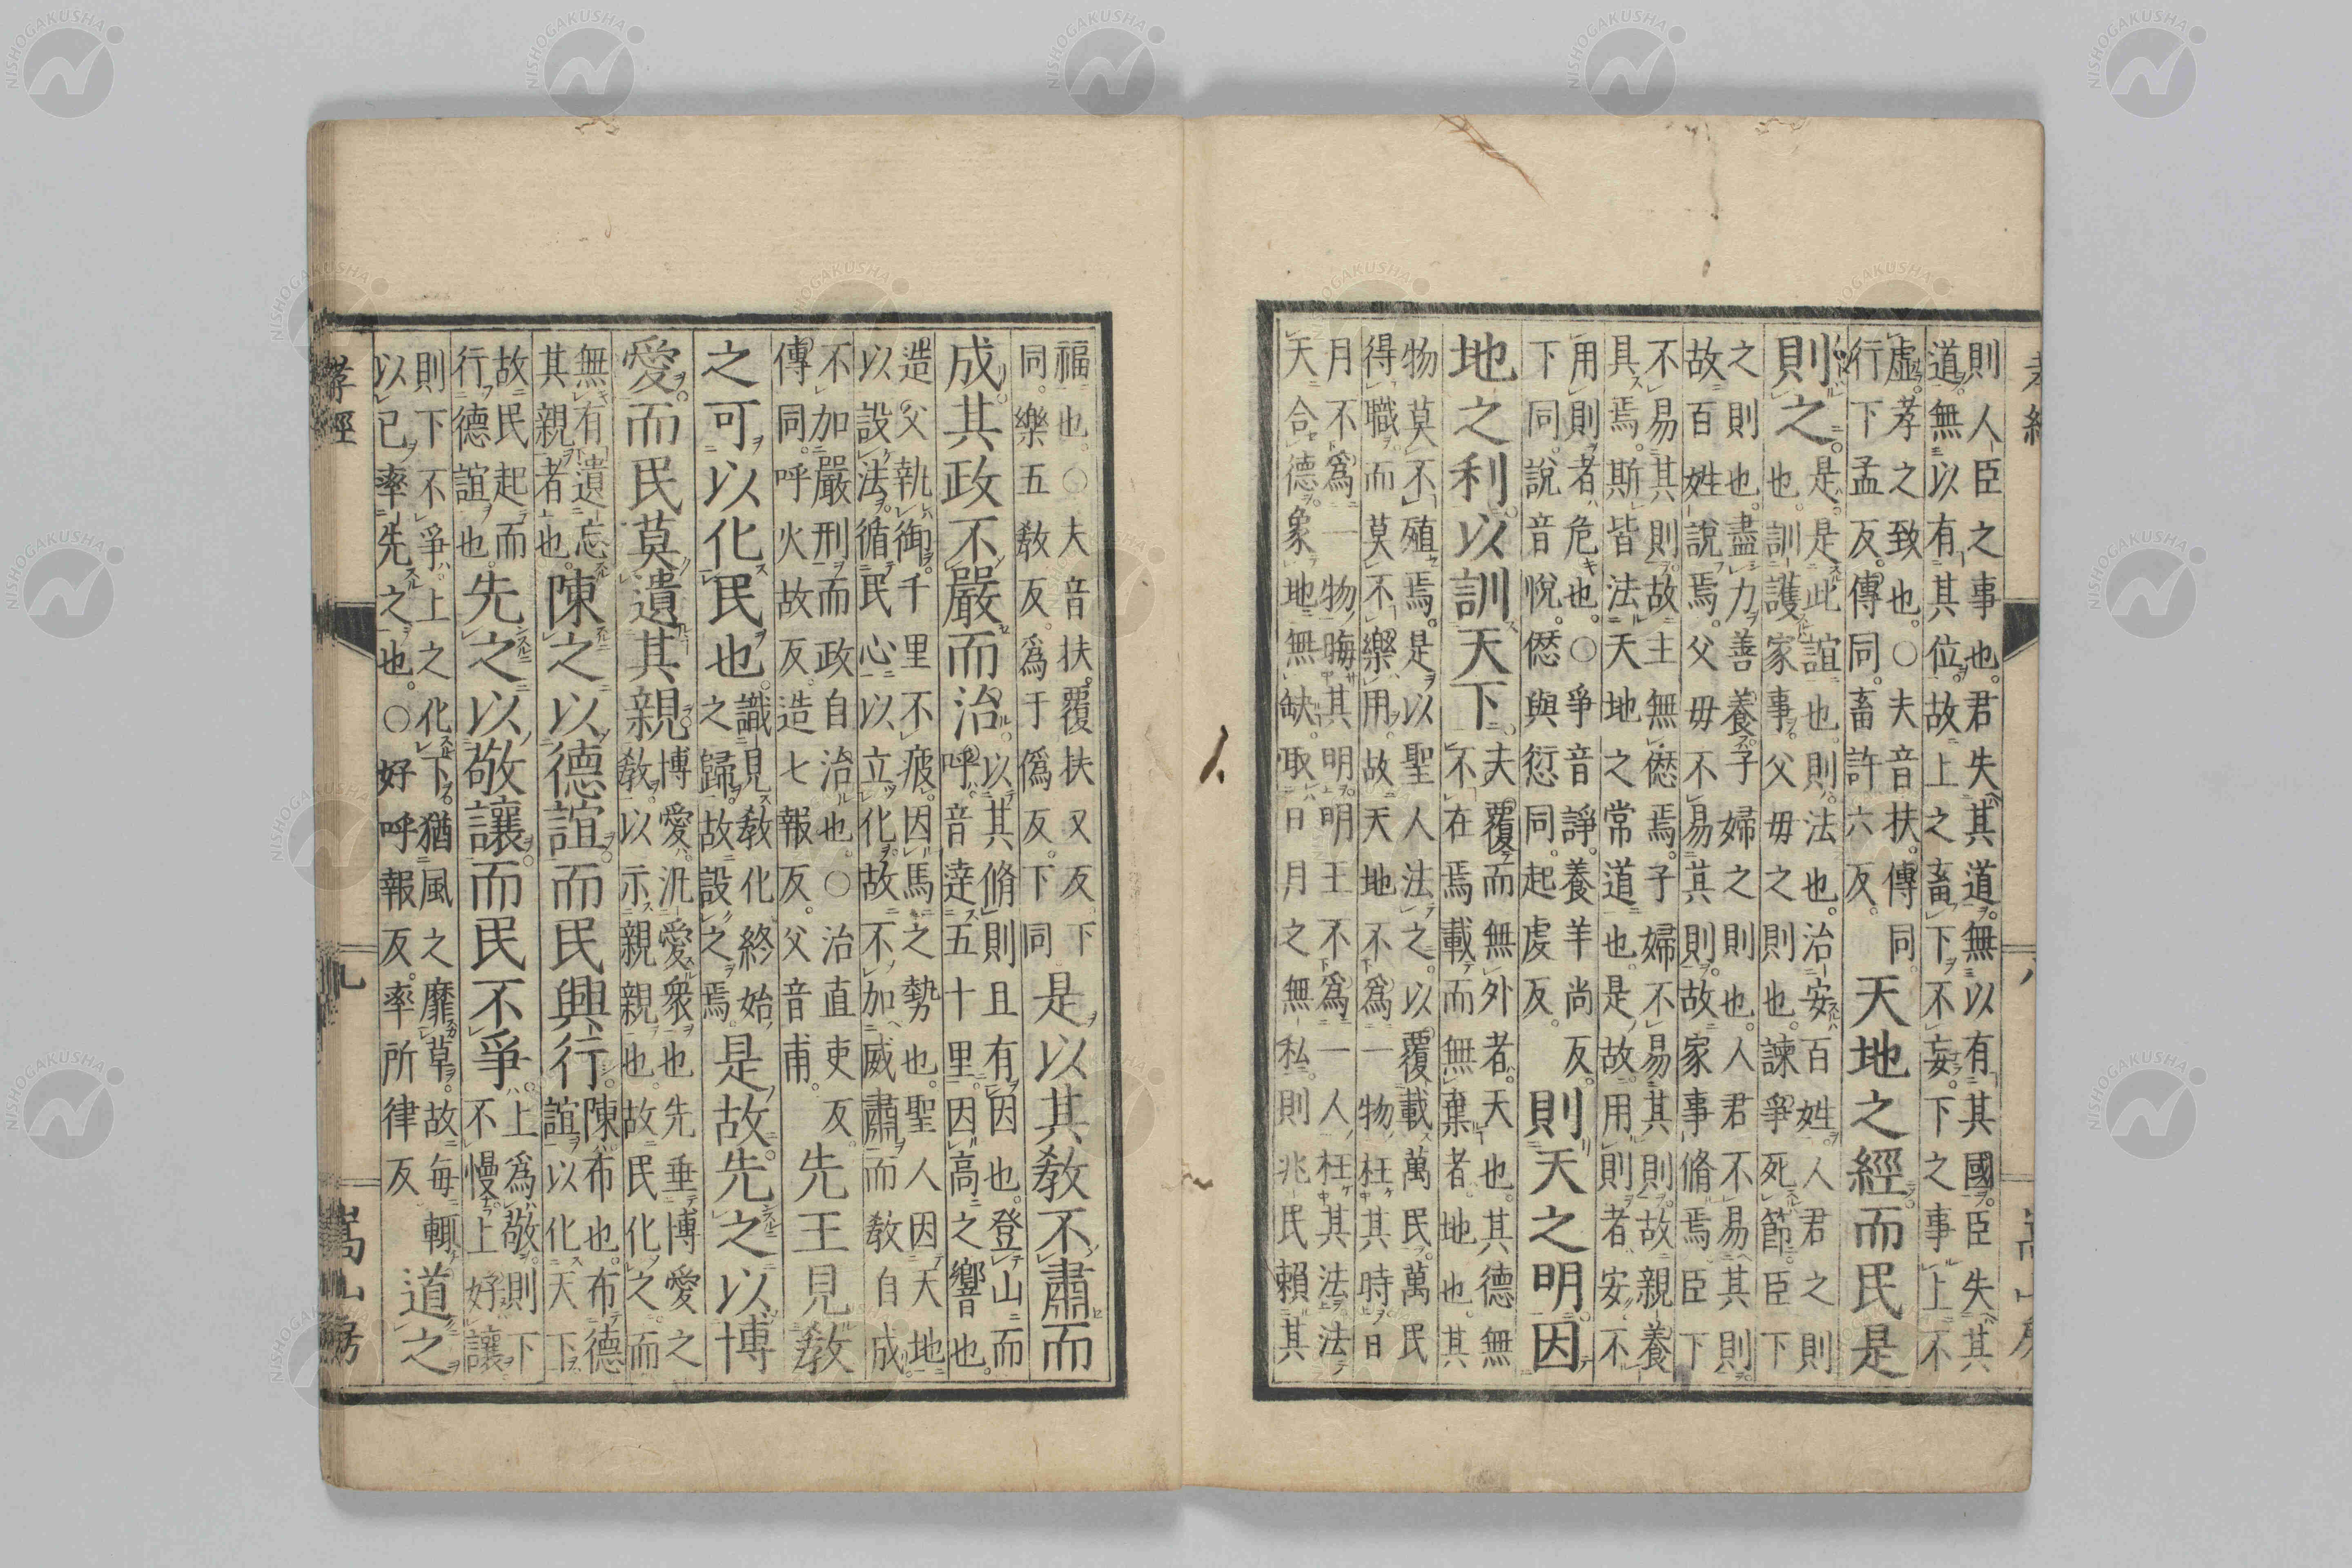 則人臣之事也君失其道無以有其國臣失其
道無以有其位故上之畜下不妄下之事上不
虛孝之致也○夫音扶傳同
行下孟反傳同畜許六反
天地之經而民是
則之
是是此誼也則法也治安百姓人君之則
也訓護家事父母之則也諫爭死節臣下
之則也盡力善養子婦之則也人君不易其則
故百姓說焉父母不易其則故家事脩焉臣下
不易其則故主無僁焉子婦不易其則故親養
具焉斯皆法天地之常道也是故用則者安不
用則者危也○爭音諍養羊尚反
下同說音悅僁與愆同起虔反
則天之明因
地之利以訓天下
夫覆而無外者天也其德無
不在焉載而無棄者地也其
物莫不殖焉是以聖人法之以覆載萬民萬民
得職而莫不樂用故天地不爲一物枉其時日
月不爲一物晦其明明王不爲一人枉其法法
天合德象地無缺取日月之無私則兆民賴其
福也○夫音扶覆扶又反下
同樂五教反爲于僞反下同
是以其教不肅而
成其政不嚴而治
以其脩則且有因也登山而
呼音達五十里因高之響也
造父執御千里不疲因馬之勢也聖人因天地
以設法循民心以立化故不加威肅而教自成
不加嚴刑而政自治也○治直吏反
傳同呼火故反造七報反父音甫
先王見教
之可以化民也
識見教化終始
之歸故設之焉
是故先之以博
愛而民莫遺其親
博愛汎愛衆也先垂博愛之
教以示親親也故民化之而
無有遺忘
其親者也
陳之以德誼而民興行
陳布也布德
誼以化天下
故民起而
行德誼也
先之以敬讓而民不爭
上爲敬則下
不慢上好讓
則下不爭上之化下猶風之靡草故每輒
以已率先之也○好呼報反率所律反
道之
孝經
九
嵩山房